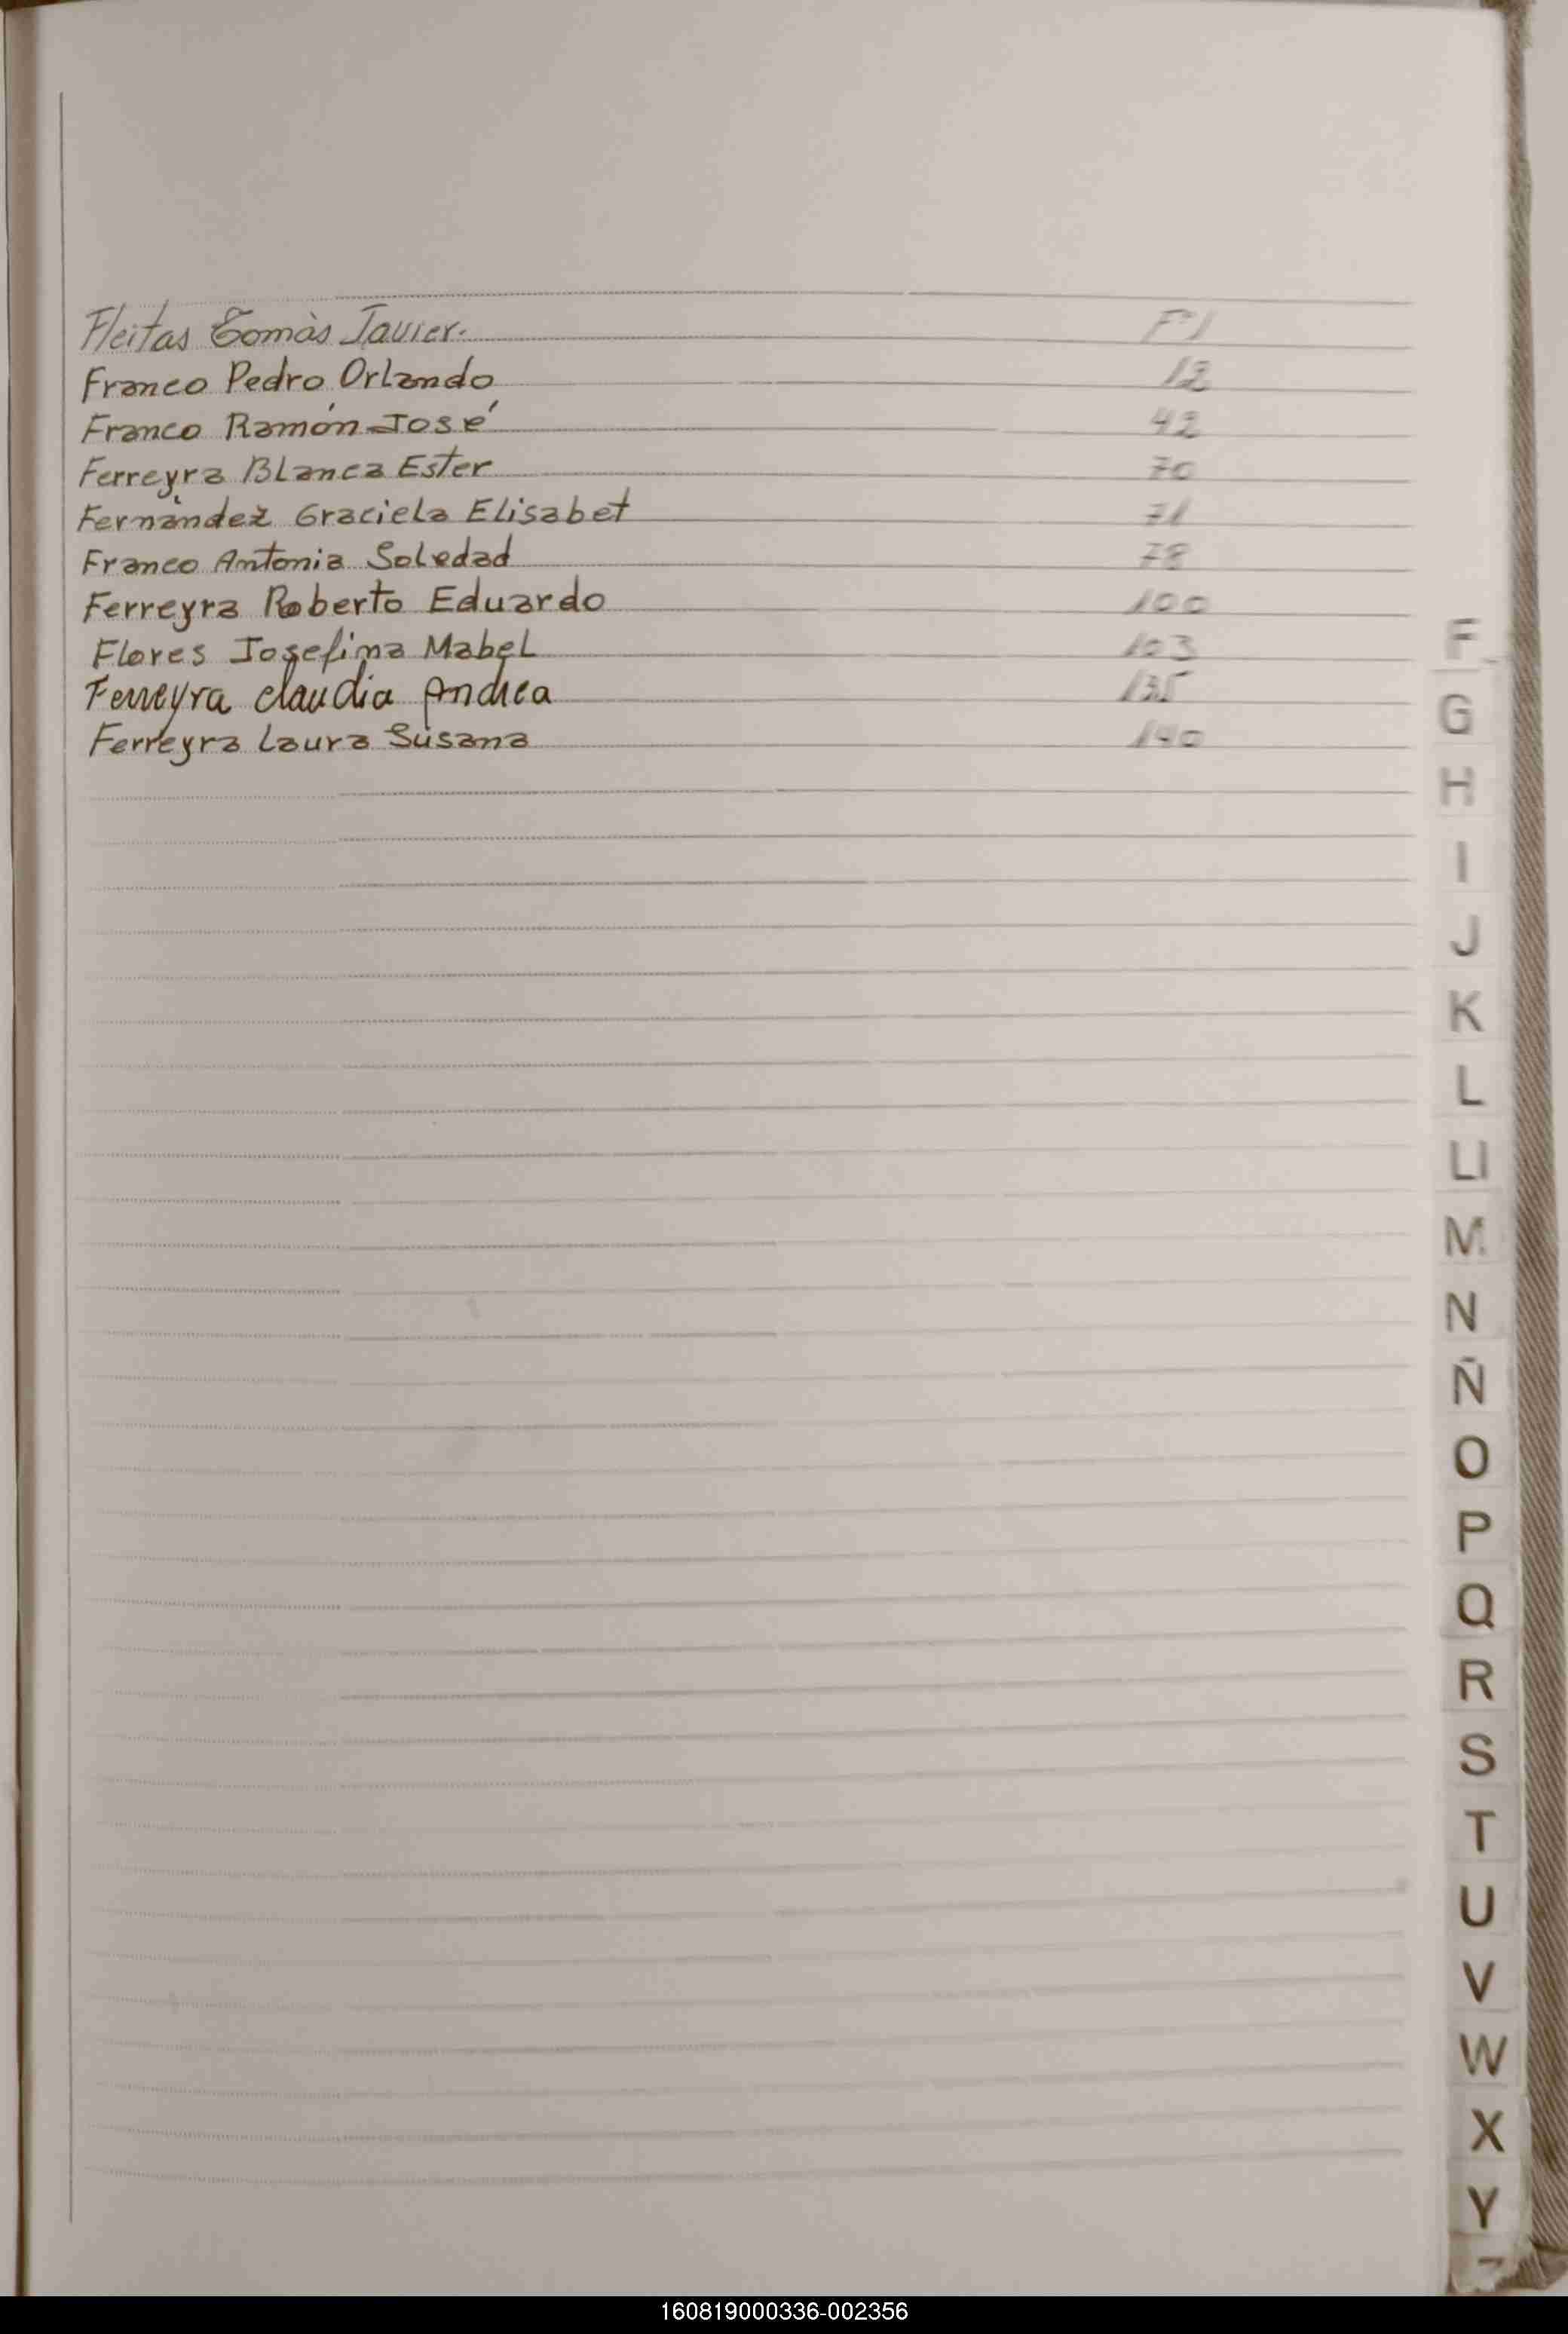 Fleitas Tomàs Javier. Fº1
Franco Pedro Orlando 12
Franco Ramón José 42
Ferreyra Blanca Ester 70
Fernández Graciela Elisabet 71
Franco Antonia Soledad 78
Ferreyra Roberto Eduardo 100
Flores Josefina Mabel 103
Ferreyra Claudia Andrea 135
Ferreyra Laura Susana 140
F
G
H
I
J
K
L
M
N
Ñ
O
P
Q
R
S
T
U
V
W
X
Y
160819000336-002356